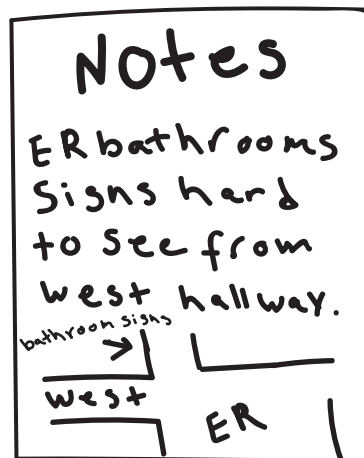 Notes
ER bathrooms
Signs hard
to see from
west hallway.
bathroom signs
west
ER